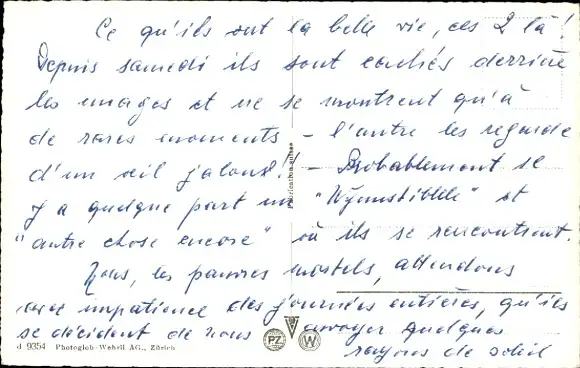 Ce qu'ils ont la belle vie, ces 2 là!
Depuis samedi ils sont cachés derrière
les nuages et ne se montrent qu'à
de rares moments – l'autre les regarde
d'un œil jaloux! – Probablement
y a quelque part un "Wynustiblile" et
"autre chose encore" où ils se rencontrent.
Nous, les pauvres mortels, attendons
avec impatience des journées entières, qu'ils
se décident de nous envoyer quelques
rayons de soleil
Fabrication suisse
d 9354 Photoglob-Wehrli AG., Zürich
PZ W